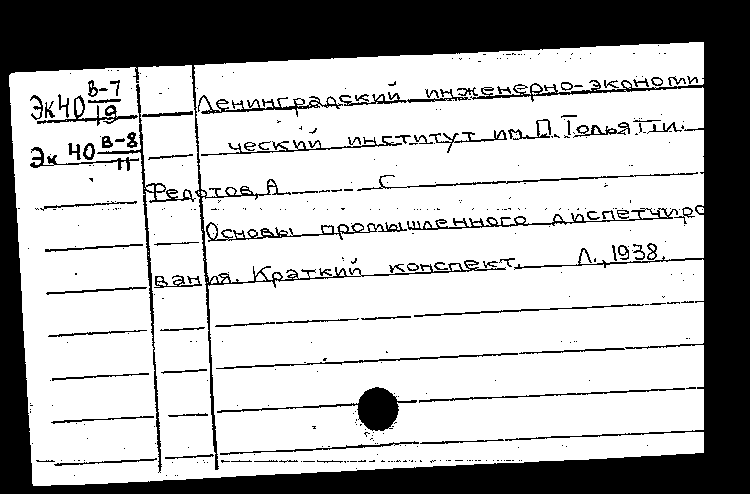 Эк40 В-7/19
Ленинградский инженерно-экономи-
Эк 40 В-8/11
ческий институт им. П. Тольятти.
Федотов, А С
Основы промышленного диспетчиро
вания. Краткий конспект. Л., 1938.